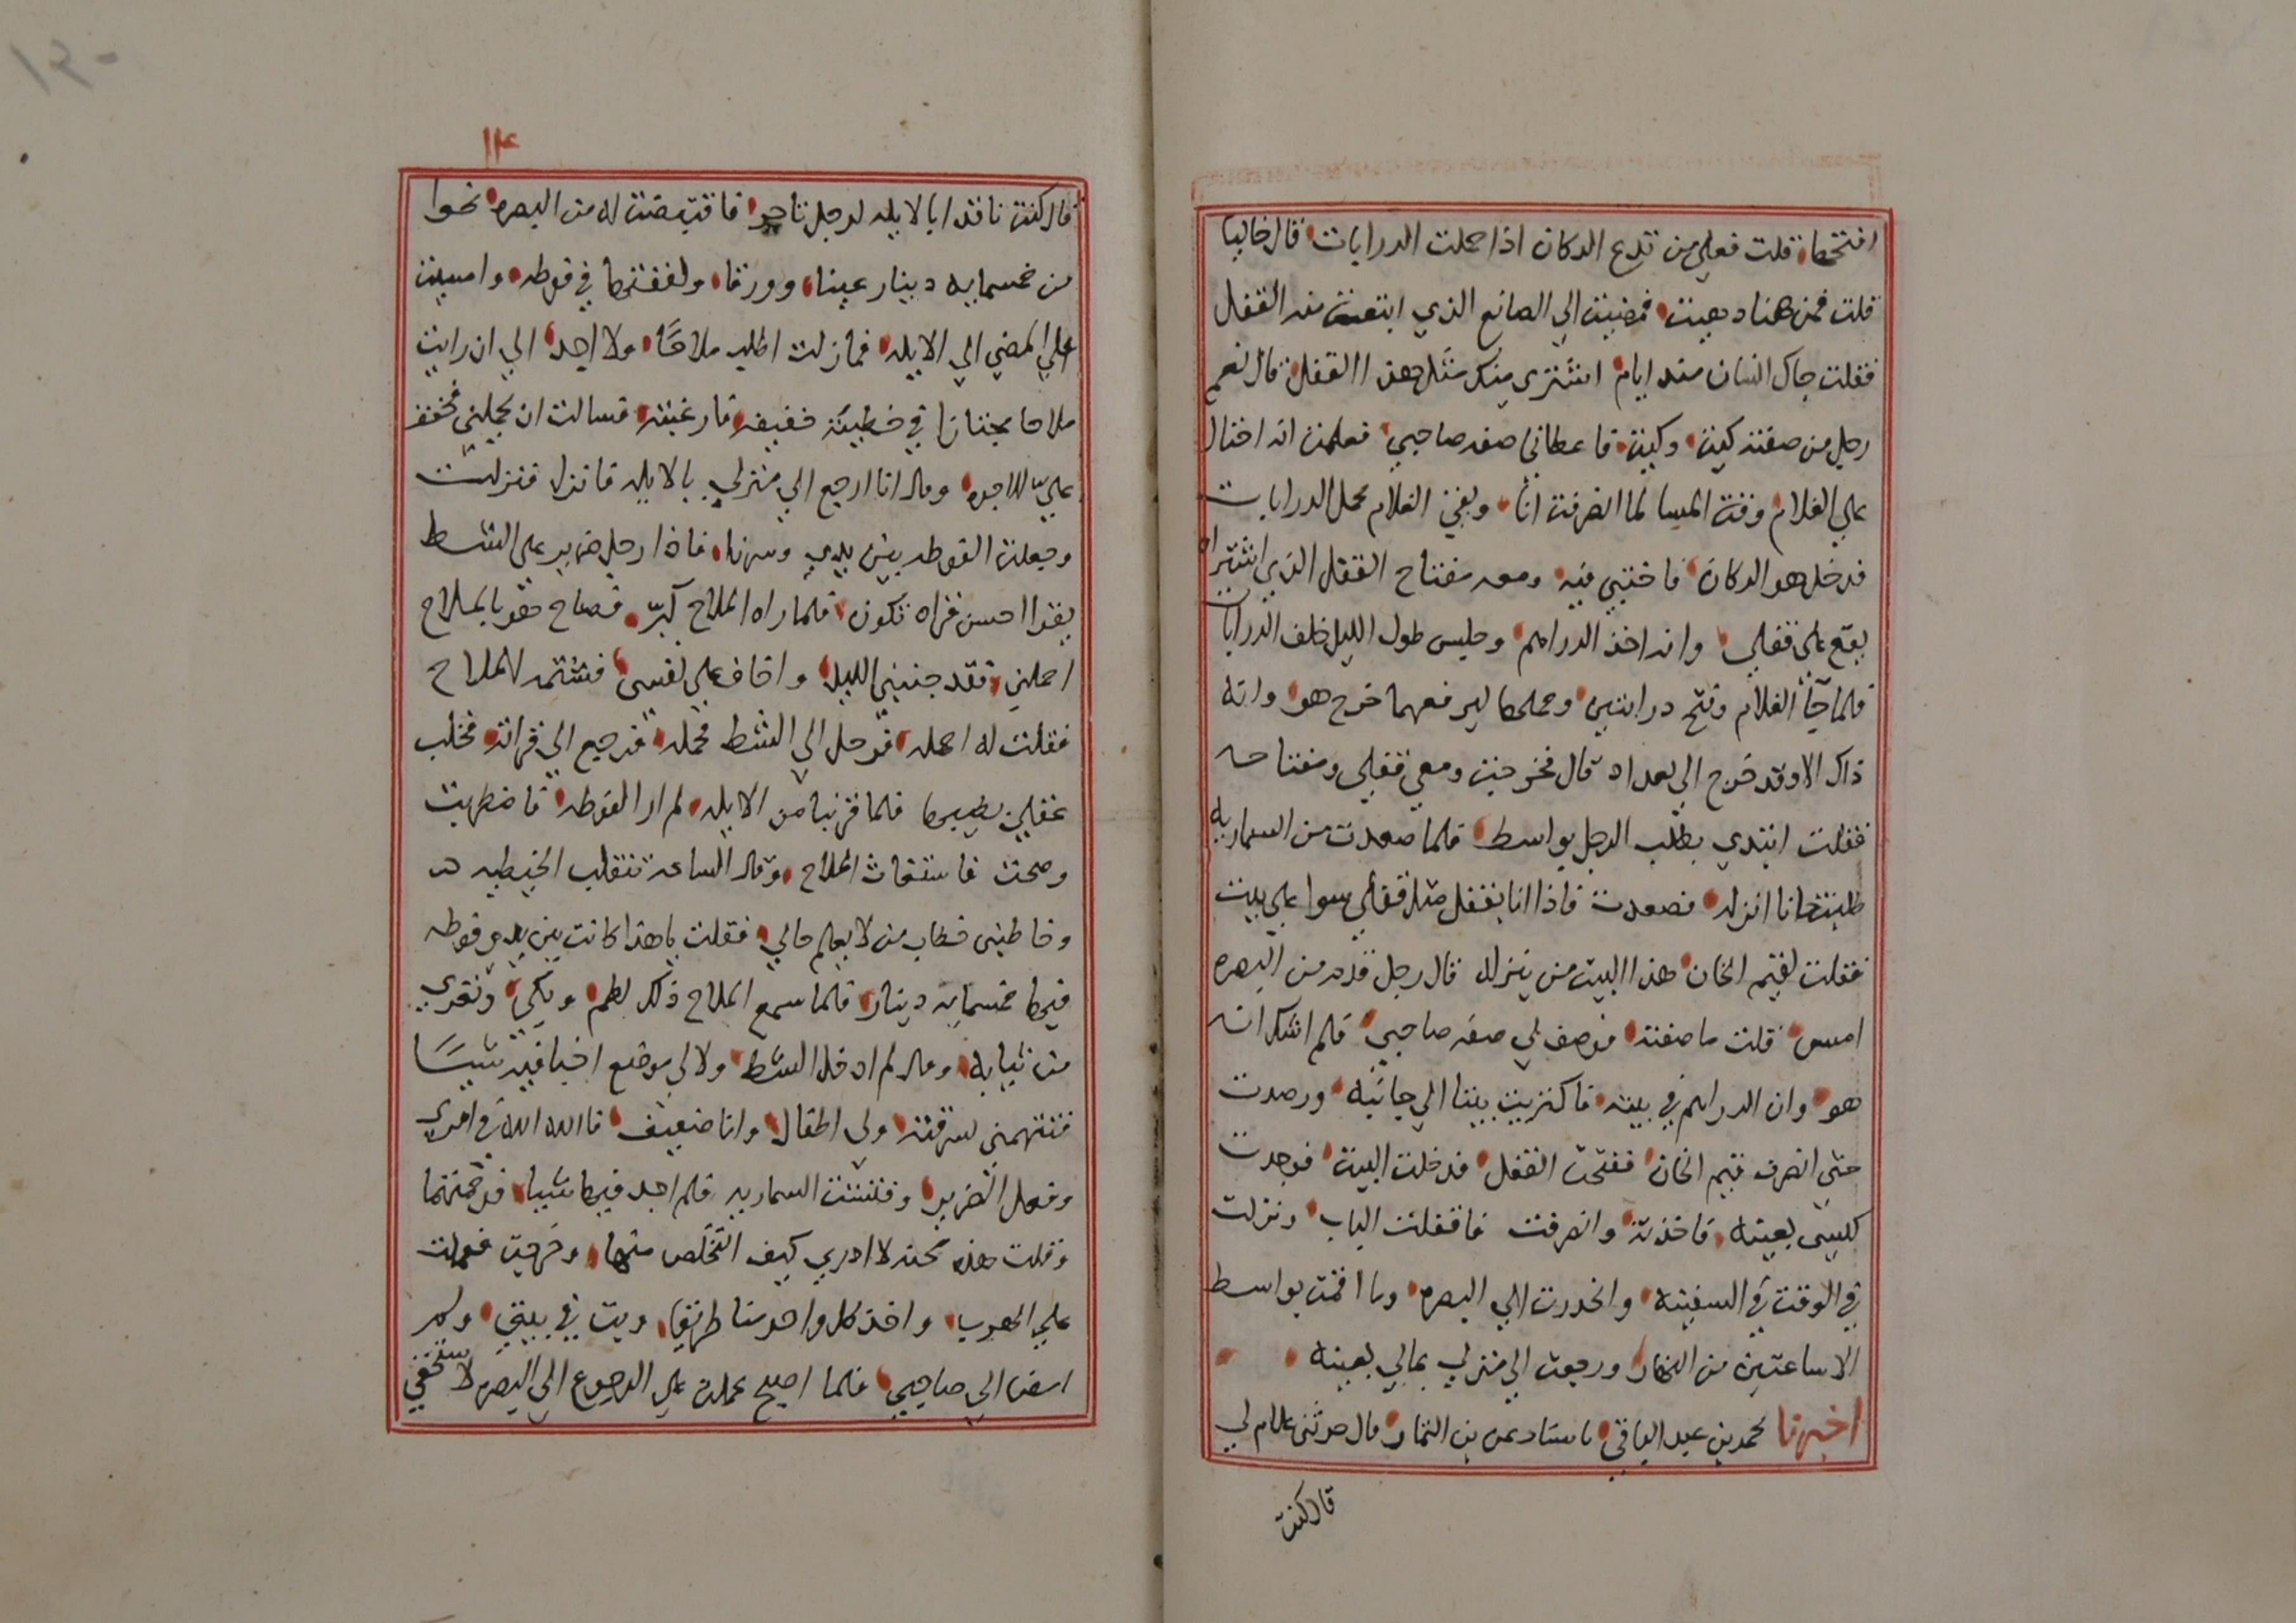 افتحها قلت فعلي من تدع الدكان اذا حملت الدرابات قال خاليا
قلت فمن هنا دهيت فمضيت الي الصانع الذي ابتعت منه القفل
فقلت جاك انسان منذ ايام اشترى منك مثل هذا القفل قال نعم
رجل من صفته كيت وكيت فاعطاني صفه صاحبي فعلمت انه احتال
علي الغلام وقت المسا لما انصرفت انا وبقي الغلام يحمل الدرابات
فدخل هو الدكان فاختبى فيه ومعه مفتاح القفل الذي اشتراه
يقع على قفلي وانه اخذ الدراهم وجلس طول الليل خلف الدرابات
فلما جا الغلام وفتح درابتين وحملها ليرفعهما خرج هو وانه
ذاك الا وقد خرج الى بغداد قال فخرجت ومعي قفلي ومفتاحه
فقلت ابتدي بطلب الرجل بواسط فلما صعدت من السماريه
طلبت خانا انزله فصعدت فاذا انا بقفل مثل قفلي سوا علي بيت
فقلت لقيم الخان هذا البيت من ينزله قال رجل قدم من البصره
امس فقلت ما صفته فوصف لي صفه صاحبي فلم اشك انه
هو وان الدراهم في بيته فاكتريت بيتا الي جانبه ورصدت
حتى انصرف قيم الخان ففتحت القفل فدخلت البيت فوجدت
كيسي بعينه فاخذته وانصرفت فاقفلت الباب ونزلت
في الوقت في السفينه وانحدرت الي البصره وما اقمت بواسط
الا ساعتين من النهار ورجعت الى منزلي بمالي بعينه
اخبرنا محمد بن عبد الباقي باسناد عن بن التمار قال حدثني غلام لي
قال كنت
١٤
قال كنت ناقدا بالابله لرجل تاجر فاقتبضت له من البصره نحوا
من خمسمايه دينار عينا وورقا ولففتها في فوطه وامسيت
علي المضي الي الابله فما زلت اطلب ملاحا ولا اجد الي ان رايت
ملاحا مجتازا في خيطيه خفيفه فارغة فسالت ان يحملني فخفف
علي الاجره وقال انا ارجع الي منزلي بالابله فانزل فنزلت
وجعلت الفوطه بين يدي وسرنا فاذا رجل ضرير على الشط
يقرا احسن قراه تكون فلما راه الملاح كبر فصاح هو بالملاح
احملني فقد جنني الليل واخاف علي نفسي فشتمه الملاح
فقلت له احمله فدخل الي الشط فحمله فرجع الى قراته فخلب
عقلي بطيبها فلما قربنا من الابله لم ار الفوطه فاضطربت
وصحت فاستغاث الملاح وقال الساعه تنقلب الخيطيه
وخاطبني خطاب من لا يعلم حالي فقلت يا هذا كانت بين يدي فوطه
فيها خمسمايه دينار فلما سمع الملاح ذلك لطم وبكى وتعرى
من ثيابه وقال لم ادخل الشط ولا لي موضع اخبا فيه شيا
فتتهمني بسرقته ولي اطفال وانا ضعيف فالله الله في امري
وفعل الضرير وفتشت السماريه فلم اجد فيها شيا فرحمتهما
وقلت هذه محنه لا ادري كيف التخلص منها وخرجت فعملت
علي الهرب واخذ كل واحد منا طريقا وبت في بيتي ولم
امض الي صاحبي فلما اصبح عملت علي الرجوع الي البصره لاستخفي